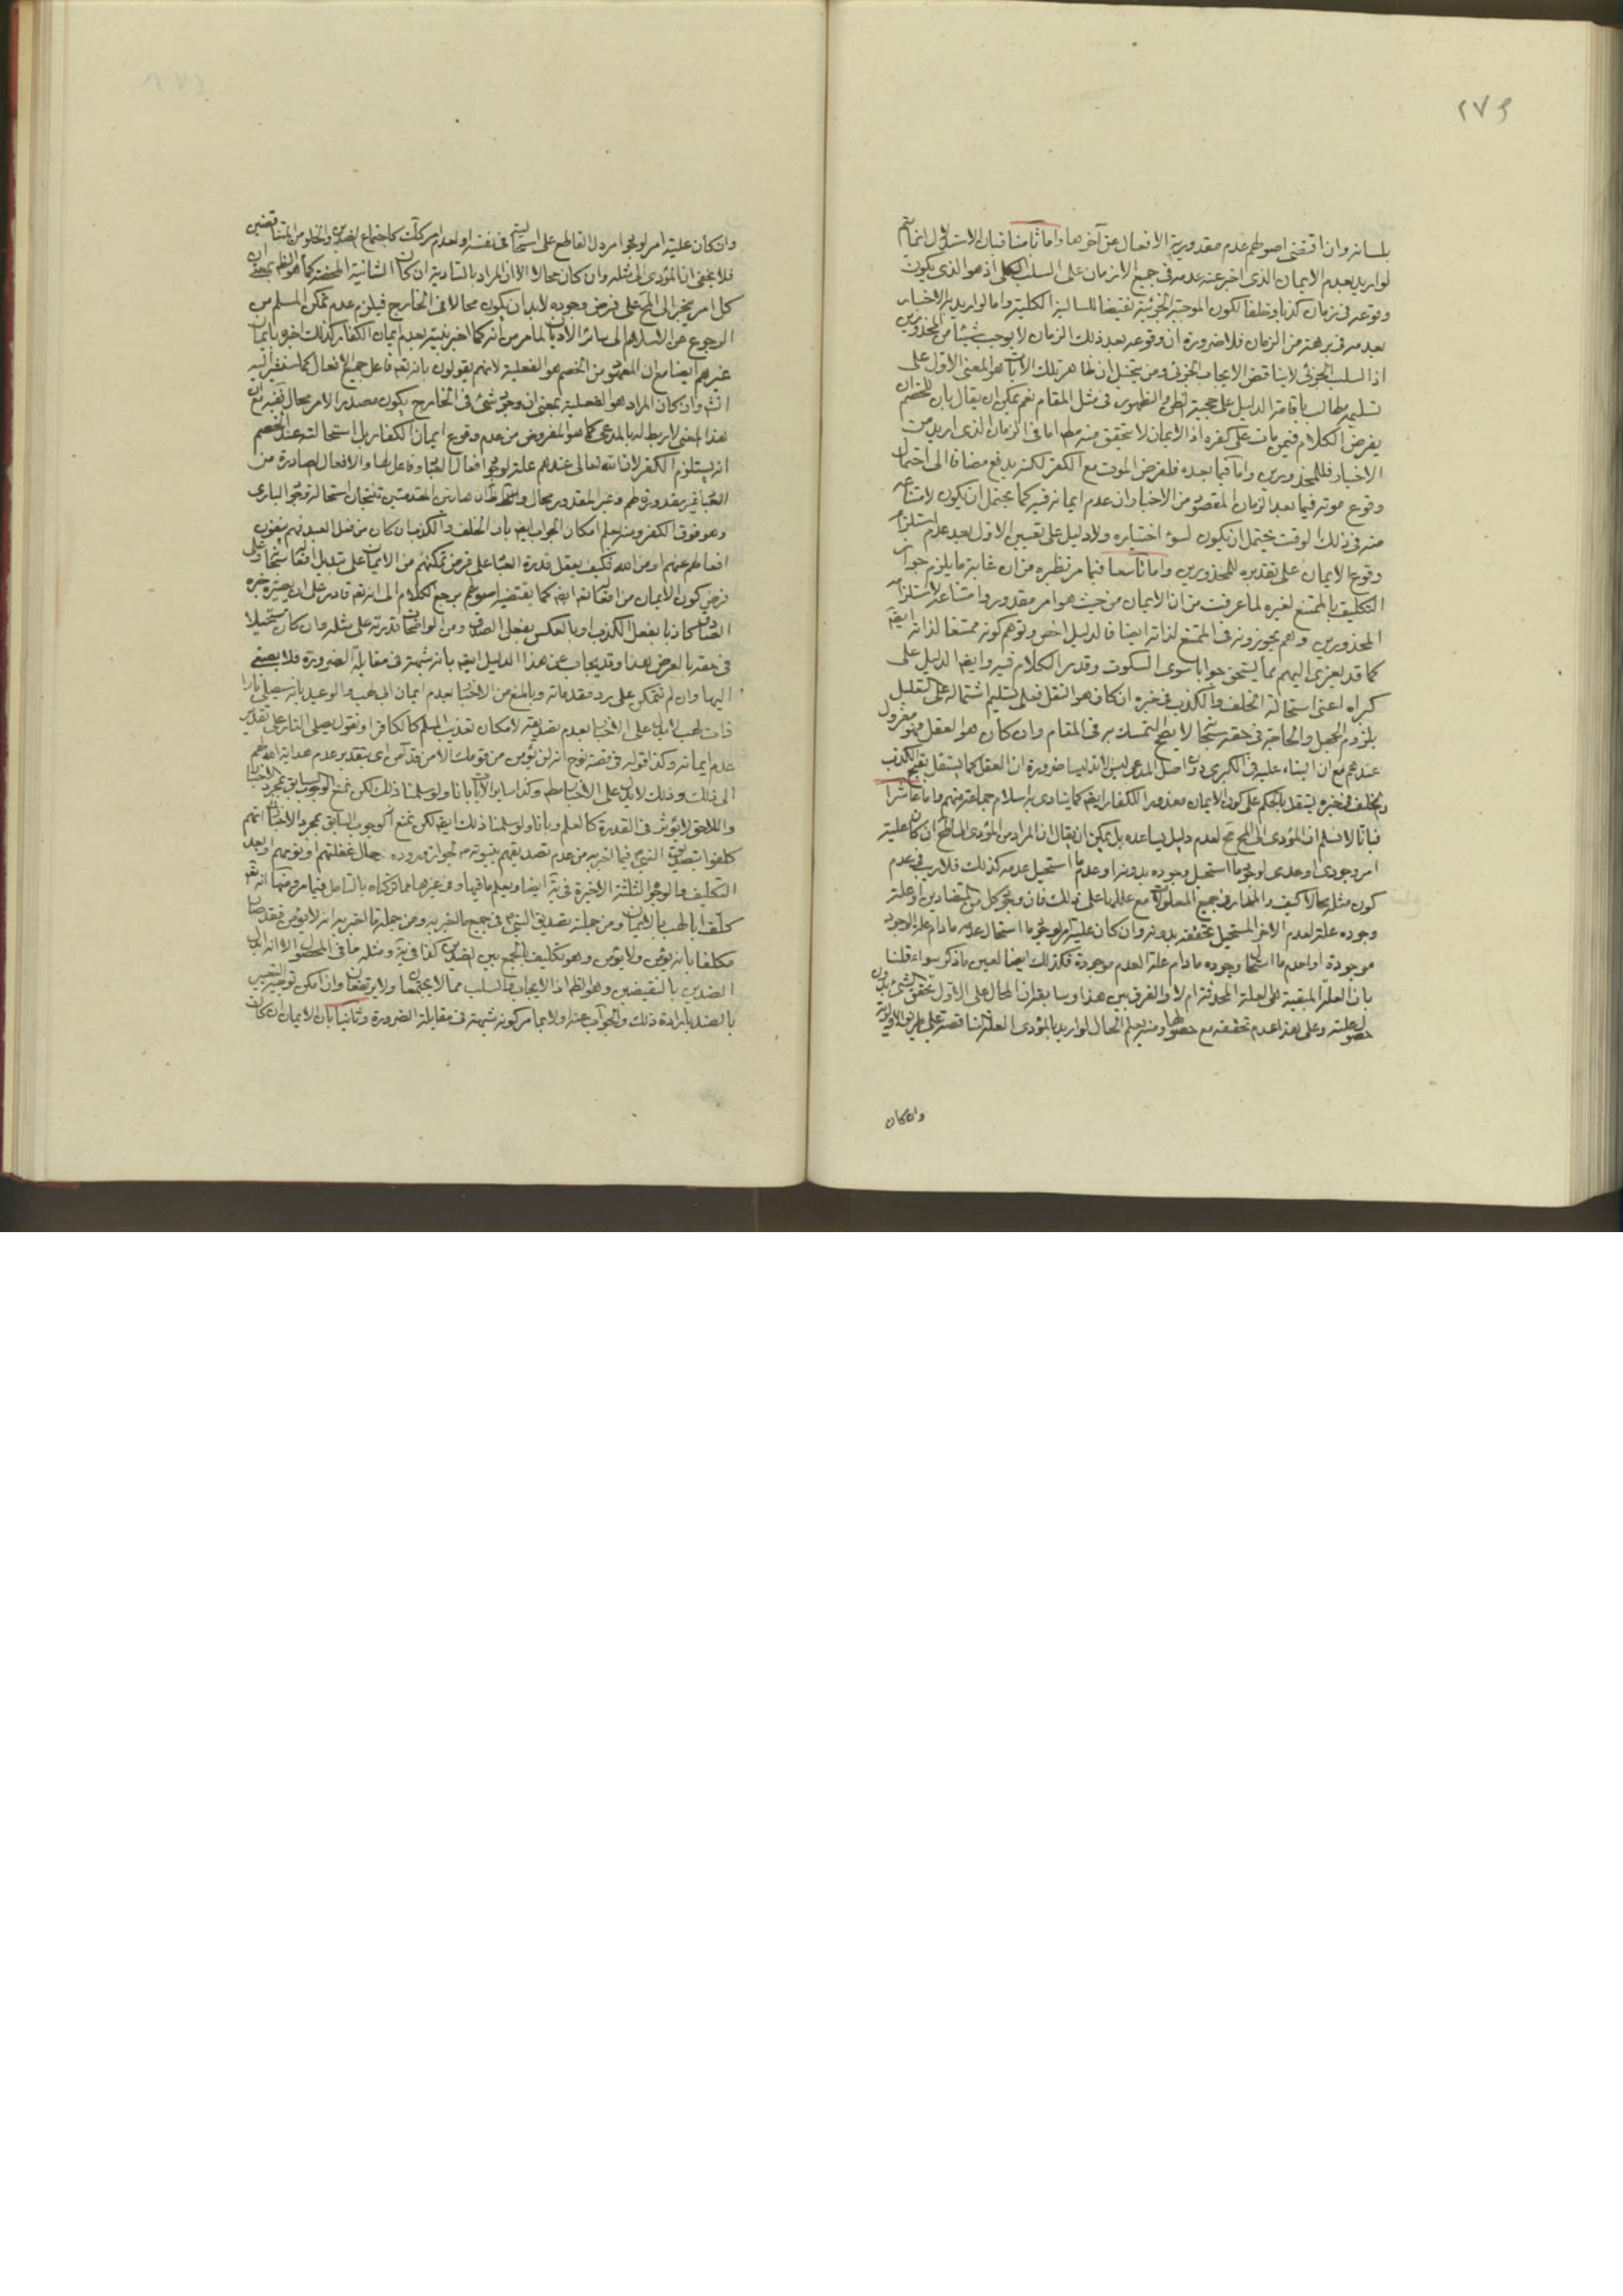 ٢٧٣
بلسانه وان اقتضى اصولهم عدم مقدورية الافعال عن آخرها واما ثامنا فبان الاستدلال انما يتم
لو اريد بعدم الايمان الذى اخبر عنه عدمه فى جميع الازمان على السلب الكلى اذ هو الذى يكون
وقوعه فى زمان كذبا وخلفا لكون الموجبة الجزئية نقيضا للسالبة الكلية واما لو اريد به الاخبار
بعدمه فى برهة من الزمان فلا ضرورة ان وقوعه بعد ذلك الزمان لا يوجب شيئا من المحذورين
اذ السلب الجزئى لا يناقض الايجاب الجزئى ومن يتخيل ان ظاهر تلك الآيات هو المعنى الاول على
تسليمه مطالب باقامة الدليل على حجية الظن والظهور فى مثل المقام نعم يمكن ان يقال بان للخصم ان
يفرض الكلام فيمن مات على كفره اذ الايمان لا يتحقق منه مطلقا اما فى الزمان الذى اريد من
الاخبار فللمحذورين واما فيما بعده فلفرض الموت مع الكفر لكنه يدفع مضافا الى احتمال
وقوع موته فيما بعد الزمان المقصود من الاخبار ان عدم ايمانه فيه كما يحتمل ان يكون لامتناعه
منه فى ذلك الوقت يحتمل ان يكون لسوء اختياره ولا دليل على تعيين الاول بعد عدم استلزام
وقوع الايمان على تقديره للمحذورين واما تاسعا فبما مر نظيره من ان غاية ما يلزم جواز
التكليف بالممتنع لغيره لما عرفت من ان الايمان من حيث هو امر مقدور وامتناعه لاستلزامه
المحذورين وهم يجوزونه فى الممتنع لذاته ايضا فالدليل اخص وتوهم كونه ممتنعا لذاته ايضا
كما قد يعزى اليهم مما يستحق جوابا سوى السكوت وقد مر الكلام فيه وايضا الدليل على
كبراه اعنى استحالة الخلف والكذب فى خبره ان كان هو النقل فعلى تسليم اشتماله على التعليل
بلزوم الجهل والحاجة فى حقه سبحانه لا يصح التمسك به فى المقام وان كان هو العقل فهو معزول
عندهم مع ان البناء عليه فى الكبرى دون اصل المدعى ليس لاذ ليسا ضرورة ان العقل كما يستقل بقبح الكذب
والخلف فى خبره يستقل بالحكم على كون الايمان مقدورا للكفار ايضا كما ينادى به اسلام جماعة منهم واما عاشرا
فبانا لا نسلم ان المؤدى الى المحال محال لعدم دليل يساعده بل يمكن ان يقال ان المراد من المؤدى الى المحال ان كان علية
امر وجودى او عدمى لوجود ما استحيل وجوده بدونه او عدم ما استحيل عدمه كذلك فلا ريب فى عدم
كون مثله محالا كيف والمتعارف جميع المعلولات مع عللها على ذلك فان وجود كل من المتضادين او علة
وجوده علة لعدم الآخر المستحيل تحققه بدونه وان كان علية امر لوجود ما استحال عدمه ما دام علة الوجود
موجودة او لعدم ما استحال وجوده ما دام علة العدم موجودة فكذلك ايضا لعين ما ذكر سواء قلنا
بان العلة المبقية هى العلة المحدثة ام لا والفرق بين هذا وسابقه ان المحال على الاول تحقق الشئ بدون
حصول علته وعلى هذا عدم تحققه مع حصولها ومنه يعلم الحال لو اريد بالمؤدى العلة الناقصة على طريق الاولوية
وان كان
وان كان علية امر لوجود امر دل القاطع على استحالته فى نفسه او لعدم امر كذلك كاجتماع الضدين والخلو من المتناقضين
فلا يخفى ان المؤدى الى مثله وان كان محالا الا ان المراد بالتأدية ان كان الشأنية المحضة كما هو الظ بمعنى ان
كل امر ينجر الى المح على فرض وجوده لا بد ان يكون محالا فى الخارج فيلزم عدم تمكن المسلم من
الرجوع عن الاسلام الى سائر الاديان لما مر من انه كما اخبر نبيه بعدم ايمان الكفار كذلك اخبره بايمان
غيرهم ايضا مع ان المعهود من الخصم هو الفعلية لانهم يقولون بانه تعالى فاعل جميع الافعال كما سنشير اليه
انش وان كان المراد هو الفعلية بمعنى ان وجود شئ فى الخارج يكون مصدرا لامر محال فغيه مع ان
هذا المعنى لا ربط له بالمدعى كما هو المفروض من عدم وقوع ايمان الكفار بل استحالته عند الخصم
انه يستلزم الكفر لان الله تعالى عندهم علة لوجود افعال العباد وفاعل لها والافعال الصادرة من
العباد غير مقدورة لهم وغير المقدور محال والحاصل ان هاتين المقدمتين تنتجان استحالة وجود البارى
وهو فوق الكفر ومنه يعلم امكان الجواب ايضا بان الخلف والكذب ان كان من فعل العبد فهم ينفون
افعالهم عنهم او من الله فكيف يعقل قدرة العباد على فرض تمكنهم من الايمان على تبديل افعاله سبحانه وعلى
فرض كون الايمان من افعاله ايضا كما يقتضيه اصولهم يرجع الكلام الى انه تعالى قادر على ان يصير خبره
الصادق كاذبا بفعل الكذب او بالعكس بفعل الصدق ومن الواضحات قدرته على مثله وان كان مستحيلا
فى حقه بالعرض هذا وقد يجاب عن هذا الدليل ايضا بانه شبهة فى مقابلة الضرورة فلا يصغى
اليها وان لم نتمكن على رد مقدماته وبالمنع من الاخبار بعدم ايمان ابى لهب والوعيد بانه سيصلى نارا
ذات لهب لا يدل على الاخبار بعدم تصديقه لامكان تعذيب المسلم كالكافر او نقول يصلى النار على تقدير
عدم ايمانه وكذا قوله فى قصة نوح انه لن يؤمن من قومك الا من قد آمن اى بتقدير عدم هداية الله لهم
الى ذلك وذلك لا يدل على الاخبار مطلقا وكذا سائر الآيات ولو سلمنا ذلك لكن نمنع الوجوب السابق بمجرد الاخبار
واللاحق لا يؤثر فى القدرة كالعلم وبانا ولو سلمنا ذلك ايضا لكن نمنع الوجوب السابق بمجرد الاخبار انهم
كلفوا بتصديق النبى فيما اخبر به من عدم تصديقهم بنبوته لجواز وروده حال غفلتهم او نومهم او بعد
التكليف والوجوه الثلثة الاخيرة فى ية ايضا ويعلم ما فيها وفى غيرها مما تركناه بالتامل فيما مر ومنها انه تعالى
كلف ابا لهب بالايمان ومن جملته تصديق النبى فى جميع ما اخبر به ومن جملة ما اخبر به انه لا يؤمن فقد صار
مكلفا بانه يؤمن ولا يؤمن وهو تكليف بالجمع بين الضدين كذا فى ية ومثله ما فى المحصول الا انه ابدل
الضدين بالنقيضين وهو الظ اذ الايجاب والسلب مما لا يجتمعان ولا يرتفعان وان امكن توجيه التعبير
بالضد بارادة ذلك والجواب عنه اولا بما مر كونه شبهة فى مقابلة الضرورة وثانيا بان الايمان ان كان